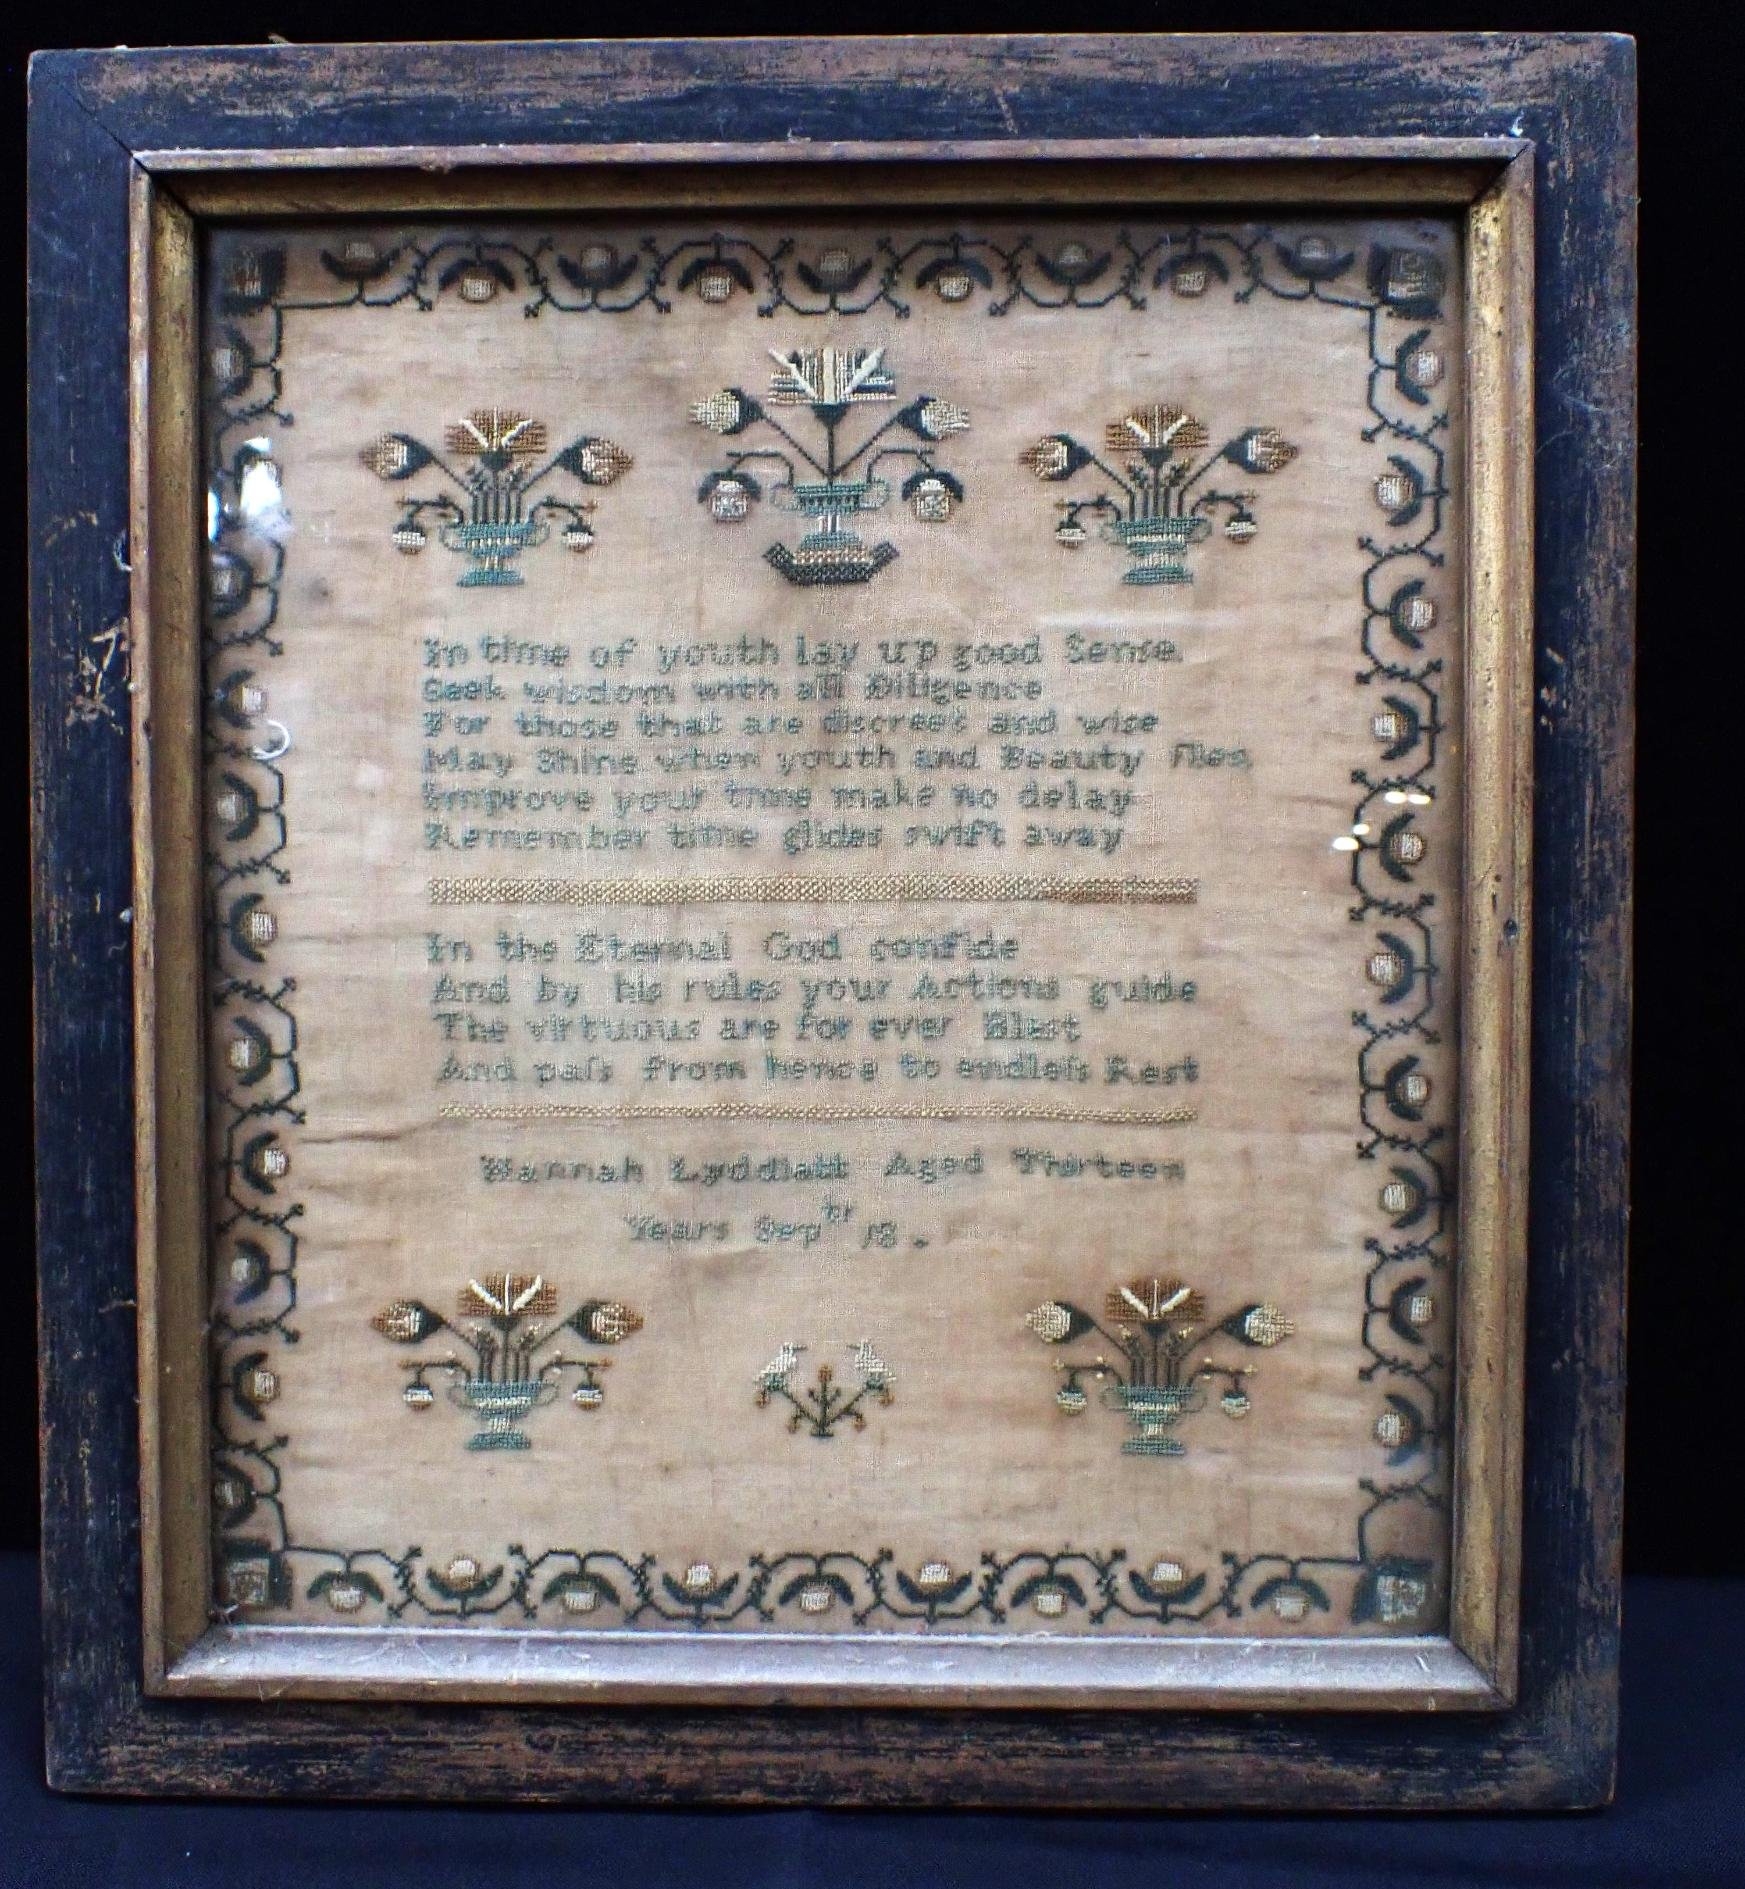 In time of youth lay up good Sense.
Seek wisdom with all Diligence
For those that are discreet and wise
May Shine when youth and Beauty Flies.
Improve your time make no delay
Remember time glides swift away
In the Eternal God confide
And by his rules your Actions guide
The virtuous are for ever Blest
And paſs from hence to endleſs Rest
Hannah Lyddiatt Aged Thirteen
Years Sepᵗʳ 18